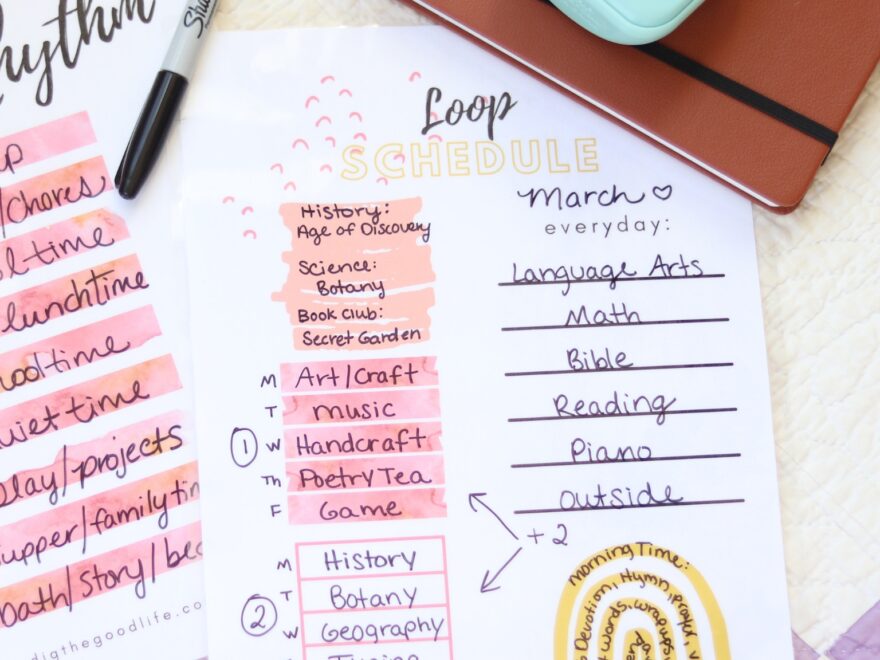 hythm
/Chores
lunchtime
time
quiet time
play/projects
supper/family
bath/story/
digthegoodlife.co
Sha
Loop
SCHEDULE
History:
Age of Discovery
Science:
Botany
Book Club:
Secret Garden
M Art/Craft
T music
① W Handcraft
Th Poetry Tea
F Game
M History
T Botany
② W Geography
March ♡
everyday:
Language Arts
Math
Bible
Reading
Piano
outside
+ 2
Morning Time:
Devotion, Hymn,
words,